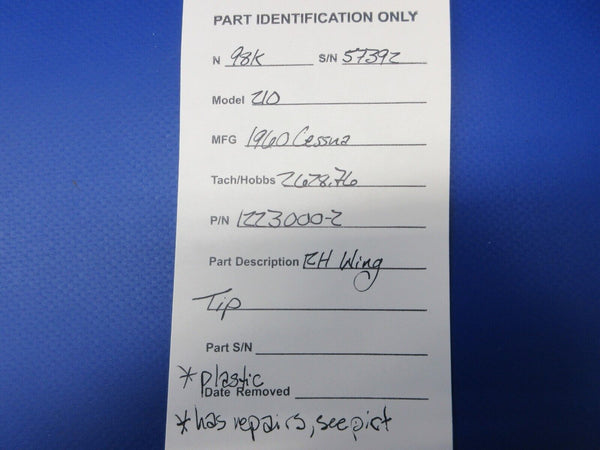 PART IDENTIFICATION ONLY
N 98K S/N 57392
Model 210
MFG 1960 Cessna
Tach/Hobbs 2628.76
P/N 1223000-2
Part Description RH Wing
Tip
Part S/N
* plastic
Date Removed
* has repairs, see pict